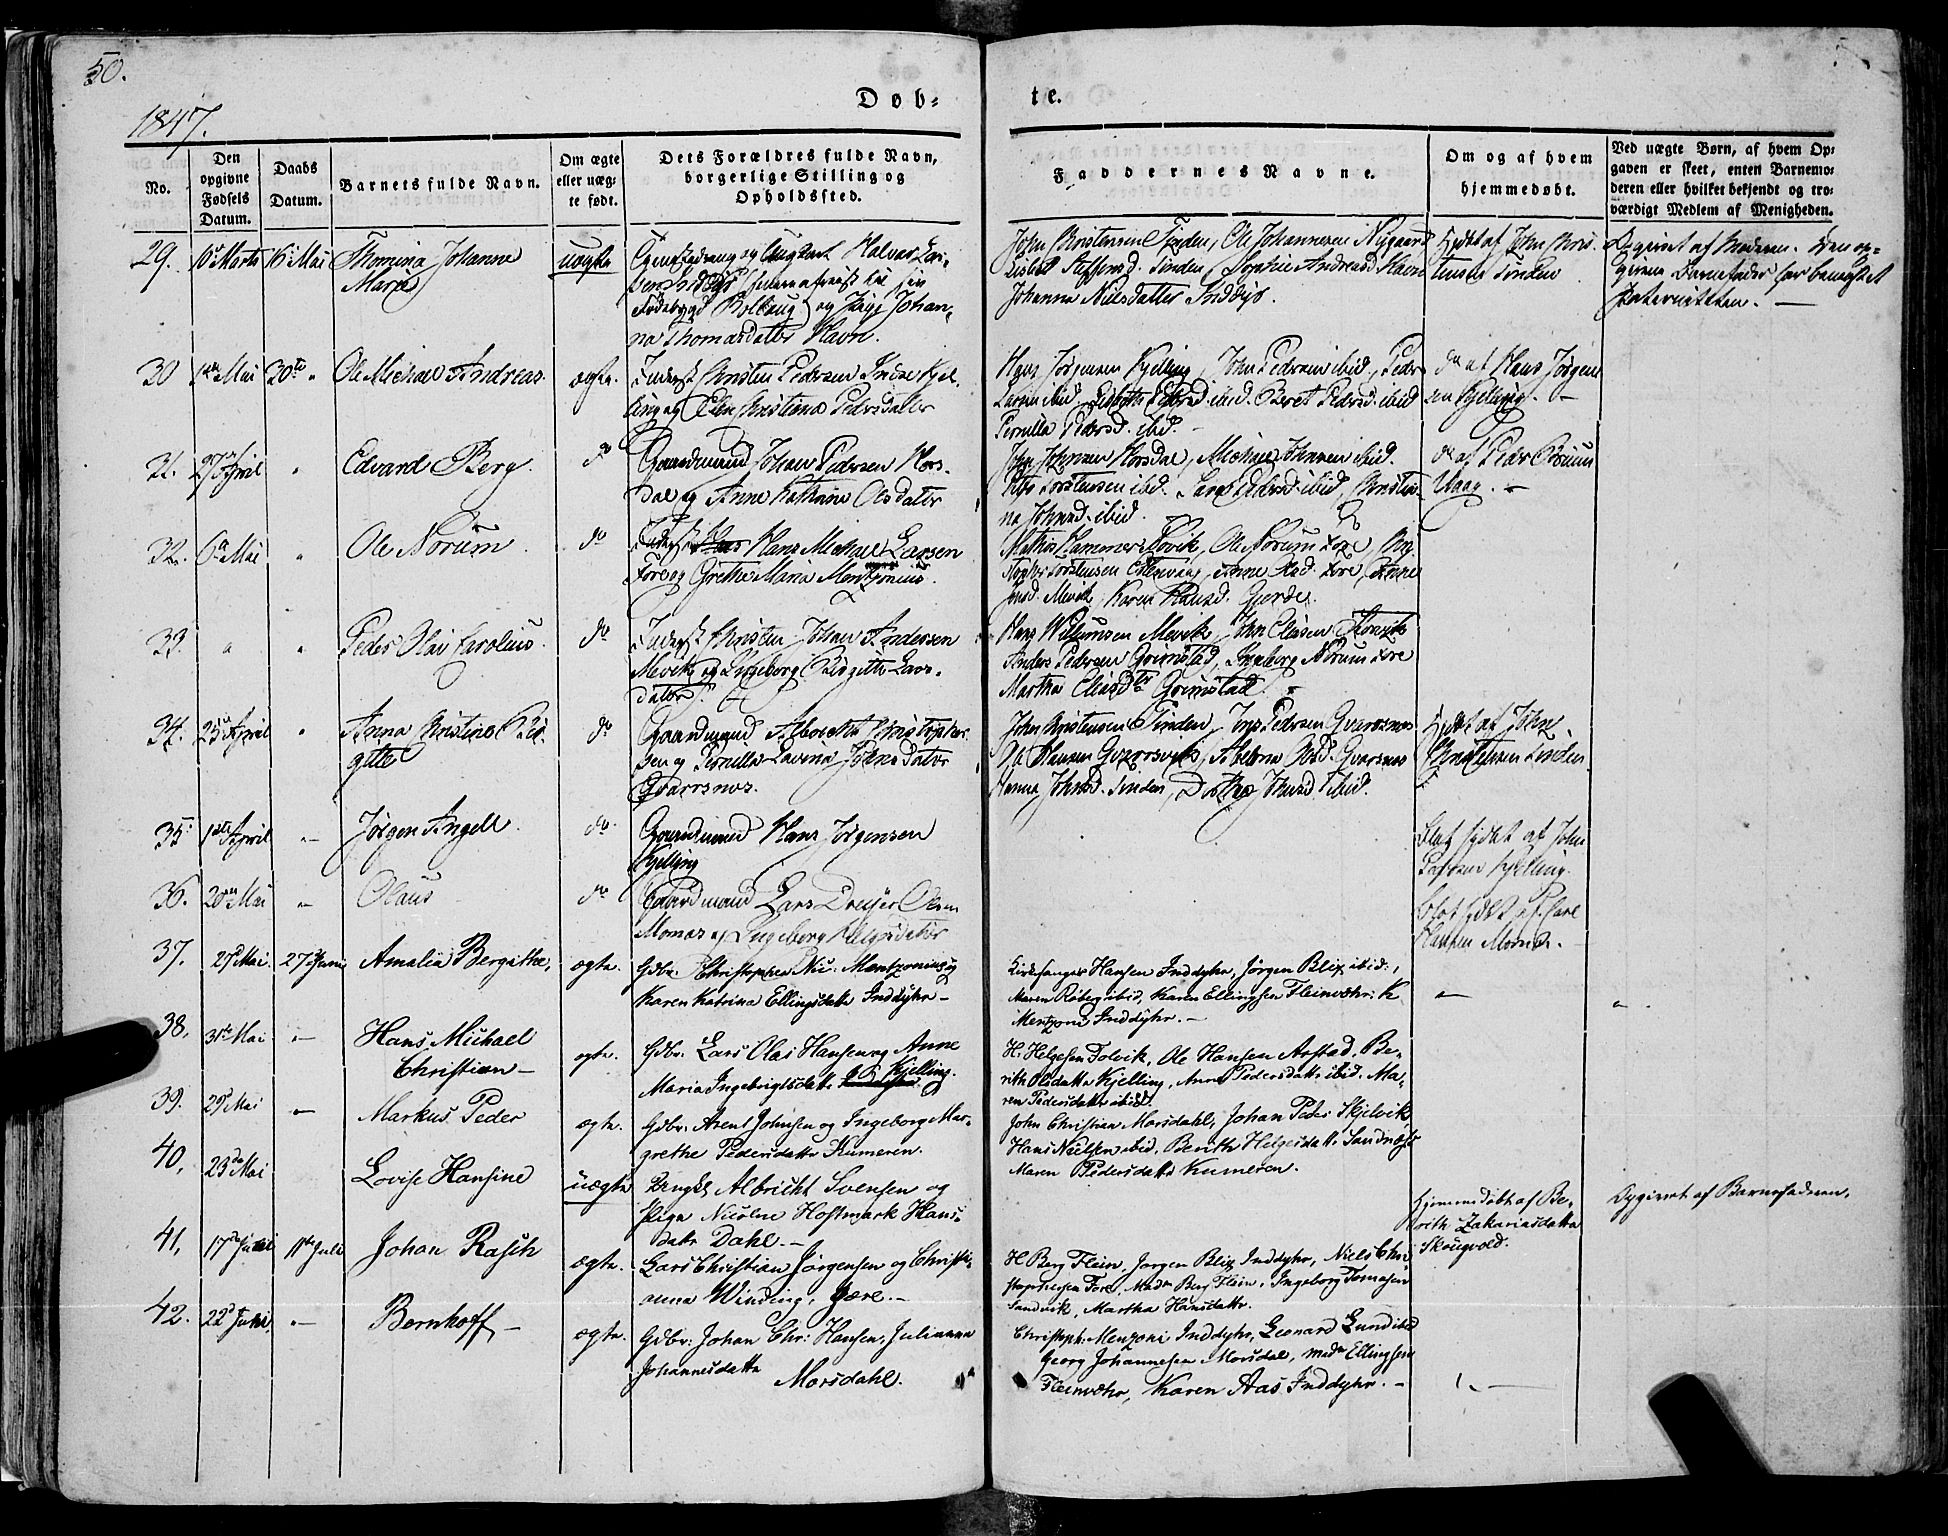 50.
1847.
Døb=
te.
No.
Den opgivne Fødsels Datum.
Daabs Datum.
Barnets fulde Navn.
Om ægte eller uæg= te født.
Dets Forældres fulde Navn, borgerlige Stilling og Opholdssted.
Faddernes Navne.
Om og af hvem hjemmedøbt.
Ved uægte Børn, af hvem Op= gaven er skeet, enten Barnemo= deren eller hvilket bekjendt og tro= værdigt Medlem af Menigheden.
29. 10de Marts 16de Mai Thomina Johanne
Maria
uægte
Halvor Lar-
Fødebygd og Pige Johan-
na Thomasdatter Havn.
John Christensen Tinden, Ole Johannesen Nygaard
Lisbet Steffensd. Tinden, Sophie Andreasd. Havn
Johanna Nielsdatter Inddyr.
Hjdøbt af John Chris-
tensen Tinden
Opgivet af Moderen. Den op-
givne Barnefader har benægtet
Paterniteten. —
30 1ste Mai 30te " Ole Michael Andreas.
ægte.
Inderst Christen Pedersen Kjel-
ling og Ellen Christina Pedersdatter
Hans Jørgensen Kjelling, John Pedersen ibid, Peder
Larsen ibid, Lisbeth Pedersd. ibid. Beret Pedersd. ibid
Pernilla Pedersd. ibid.
do af Hans Jørgen-
sen Kjelling. —
31. 27de April " Edvard Berg.
do
Gaardmand Johan Pedersen Mors-
dal og Anne Kathrina Olsdatter
John Johnsen Morsdal, Michael Johnsen ibid.
Torstensen ibid. Sara Pedersd. ibid, Christia-
na Johnsd. ibid.
do af Peder
Vaag. —
32. 6te Mai " Ole Norum
do
Inderst Hans Michael Larsen
Fore og Grethe Maria Mentzonius.
Mathis Hammer Tovik, Ole Norum Fore,
Torstensen, Anne Fore, Anne
Mevik, Karen Hansd. Gjerde.
33. " " Peder Olai Karolius.
do
Inderst Christen Johan Andersen
Mevik og Ingeborg Birgitte Lars-
datter.
Hans Mevik, John Eliasen
Anders Pedersen Grimstad, Ingeborg Norum Fore
Martha Eliasdtr Grimstad.
34. 25de April " Anna Christina Bir-
gitte
do
Gaardmand Albrecht Christopher-
sen og Pernilla Lavina Johnsdatter
Qvarsnes.
John Christensen Tinden, Jens Pedersen Qvarsnes
Ole Hansen, Abelona Olsd. Qvarsnes
Hanna Johnsd. Tinden, Dorthea Johnsd. ibid.
Hjdøbt af John
Christensen Tinden
35. 1ste April " Jørgen Angell.
do
Gaardmand Hans Jørgensen
Kjelling
Blot hjdøbt af John
Kjelling.
36. 20de Mai " Olaus
do
Gaardmand Lars Dreyer Olsen
og Ingeborg Helgesdatter
Blot hjdøbt af
Hansen.
37. 27d Mai. 27de Juni Amalia Bergithe,
ægte.
Gdbr. Christopher Nic. Mentzoni og
Karen Katrina Ellingsdatter Inddyhr —
Kirkesanger Hansen Inddyhr, Jørgen Blix ibid:,
Maren Røberg ibid, Karen Ellingsen Fleinvæhr: K
Mentzoni Inddyhr. —
38. 31te Mai " Hans Michael
Christian —
ægte.
Gdbr. Lars Olai Hansen og Anne
Maria Ingebrigtsdatter Kjelling.
H. Helgesen Tolvik, Ole Hansen Arstad, Be-
rith Olsdatter Kjelling, Anne Pedersdatter ibid. Ma-
ren Pedersdatter ibid.
39. 29d Mai " Markus Peder
ægte.
Gdbr. Arent Johnsen og Ingeborg Mar-
grethe Pedersdatter Kumeren.
John Christian Morsdahl, Johan Peter Skjelvik
Hans Nielsen ibid, Berith Helgesdatter Sandnæs
Maren Pedersdatter Kumeren.
40. 23de Mai Lovise Hansine
uægte
Ungkl Albricht Svensen og
Pige Nicoline Hoffmark Hans-
datr Dahl. —
Hjemmedøbt af Be-
rith Zakariasdatter
Skougvold.
Opgivet af Barnefaderen.
41. 17de Juni 11te Juli Johan Rasch
ægte.
Lars Christian Jørgensen og Christi-
anna Winding, Fore. —
H Berg Flein, Jørgen Blix Inddyhr, Niels Chri-
stophersen Fore, Mad Berg Flein, Ingeborg Tomasen
Sandvik, Martha Hansdatter.
42. 22d Juni " Bernhoff —
ægte.
Gdbr. Johan Chr: Hansen, Julianna
Johannesdatter
Morsdahl.
Christoph. Menzoni Inddyhr, Leonard Lund ibid
Georg Johannesen Morsdal, Mad Ellingsen
Fleinvæhr, Karen Aas Inddyhr. —